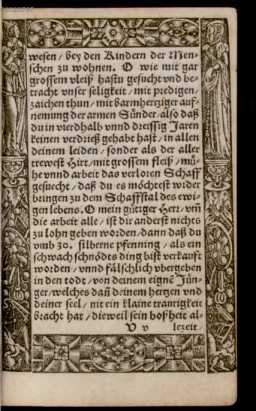 wesen / bey den Kindern der Men-
schen zu wohnen. O wie mit gar
grossem vleiß hastu gesucht vnd be-
tracht vnser seligkeit / mit predigen /
zaichen thun / mit barmhertziger auf-
nemung der armen Sünder / also daß
du in vierdhalb vnnd dreissig Jaren
keinen verdrieß gehabt hast / in allen
deinem leiden / sonder als der aller
trewest Hirt / mit grossem fleiß / mü-
he vnnd arbeit das verloren Schaff
gesucht / daß du es möchtest wider
bringen zu dem Schaffstal des ewi-
gen lebens. O mein gütiger Herr / vm̄
die arbeit alle / ist dir anderst nichts
zu lohn geben worden / dann daß du
vmb 30. silberne pfenning / als ein
schwach schnödes ding bist verkaufft
worden / vnnd fälschlich vbergeben
in den todt / von deinem eignē Jün-
ger / welches dañ deinem hertzen vnd
deiner seel / nit ein klaine traurigkeit
bracht hat / dieweil sein boßheit al-
V v lezeit /